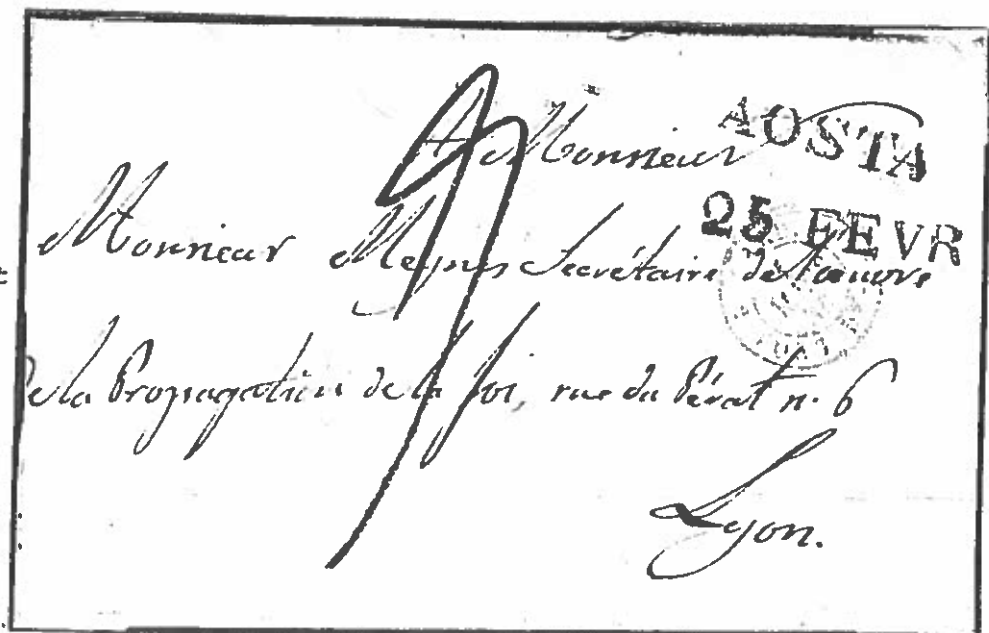 A Monsieur
AOSTA
25 FEVR
Monsieur Meynis Secrétaire de l'œuvre
de la Propagation de la foi, rue du Pérat n. 6
Lyon.